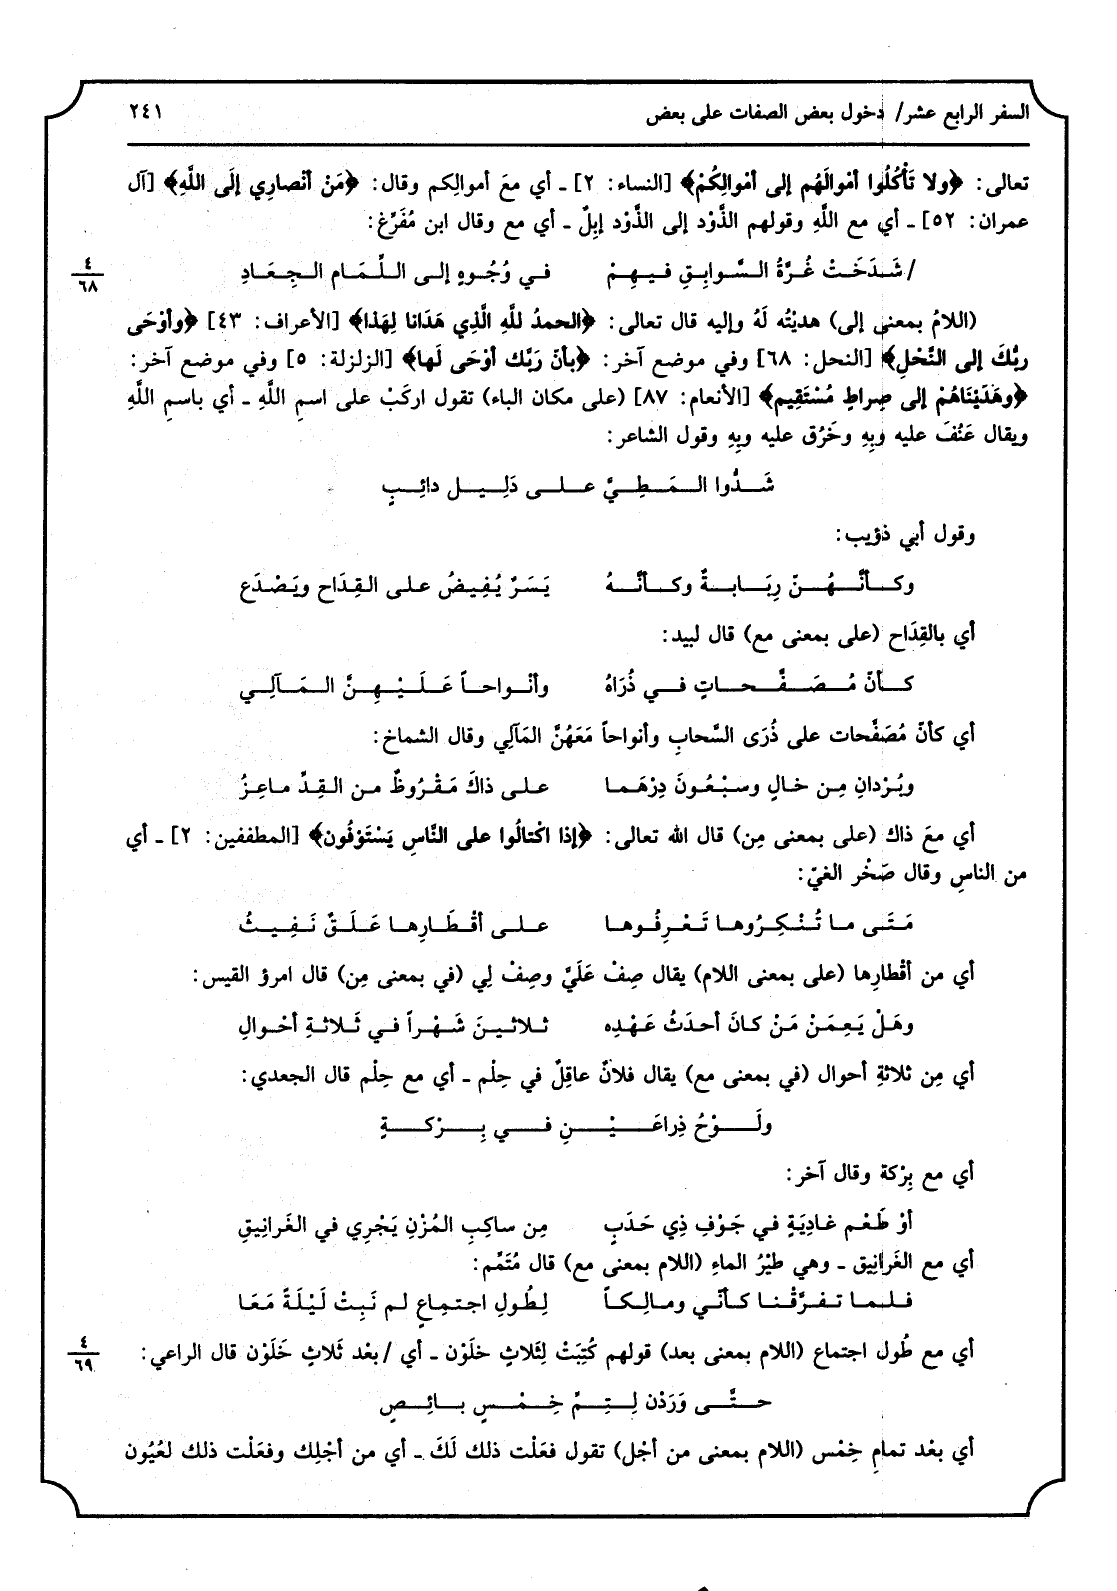 السفر الرابع عشر/ دخول بعض الصفات على بعض ٢٤١
تعالى: ﴿ولا تَأْكُلُوا أمْوالَهُم إلى أمْوالِكُمْ﴾ [النساء: ٢] ـ أي معَ أموالِكم وقال: ﴿مَنْ أنْصارِي إلَى اللَّهِ﴾ [آل
عمران: ٥٢] ـ أي مع اللَّهِ وقولهم الذَّوْد إلى الذَّوْد إبِلٌ ـ أي مع وقال ابن مُفَرِّغ:
/شَدَخَتْ غُرَّةُ السَّوابِقِ فيهِمْ في وُجُوهٍ إلى اللِّمَام الجِعَادِ
٤
٦٨
(اللامُ بمعنى إلى) هديْتُه لَهُ وإليه قال تعالى: ﴿الحمدُ للَّهِ الَّذِي هَدَانا لِهَذا﴾ [الأعراف: ٤٣] ﴿وأوْحَى
ربُّكَ إلى النَّحْلِ﴾ [النحل: ٦٨] وفي موضع آخر: ﴿بأنَ رَبِّك أوْحَى لَها﴾ [الزلزلة: ٥] وفي موضع آخر:
﴿وهَدَيْنَاهُمْ إلى صِراطٍ مُسْتَقِيم﴾ [الأنعام: ٨٧] (على مكان الباء) تقول اركَبْ على اسمِ اللَّهِ ـ أي باسمِ اللَّهِ
ويقال عَنُفَ عليه وبِهِ وخَرُق عليه وبِهِ وقول الشاعر:
شَدُّوا المَطِيَّ على دَلِيل دائِبٍ
وقول أبي ذؤيب:
وكأنَّهُنّ رِبَابةٌ وكأنَّهُ يَسَرٌ يُفِيضُ على القِدَاح ويَصْدَع
أي بالقِدَاح (على بمعنى مع) قال لبيد:
كأنّ مُصَفَّحاتٍ في ذُرَاهُ وأنْواحاً عَلَيْهِنَّ المَآلِي
أي كأنّ مُصَفَّحات على ذُرَى السَّحابِ وأنواحاً مَعَهُنَّ المَآلِي وقال الشماخ:
وبُرْدانِ مِن خالٍ وسبْعُونَ دِرْهَما على ذاكَ مَقْرُوظٌ من القِدِّ ماعِزُ
أي معَ ذاك (على بمعنى مِن) قال الله تعالى: ﴿إذا اكْتالُوا على النَّاسِ يَسْتَوْفُون﴾ [المطففين: ٢] ـ أي
من الناسِ وقال صَخْر الغيّ:
مَتَى ما تُنْكِرُوها تَعْرِفُوها على أقْطَارِها عَلَقٌ نَفِيثُ
أي من أقْطارِها (على بمعنى اللام) يقال صِفْ عَلَيَّ وصِفْ لِي (في بمعنى مِن) قال امرؤ القيس:
وهَلْ يَعِمَنْ مَنْ كانَ أحدَثُ عَهْدِه ثلاثينَ شَهْراً في ثَلاثةِ أحْوالِ
أي مِن ثلاثةِ أحوال (في بمعنى مع) يقال فلانٌ عاقِلٌ في حِلْم ـ أي مع حِلْم قال الجعدي:
ولَوْحُ ذِراعَيْنِ في بِرْكةٍ
أي مع بِرْكة وقال آخر:
أوْ طَعْم غادِيَةٍ في جَوْفِ ذِي حَدَبٍ مِن ساكِبِ المُزْنِ يَجْرِي في الغَرانِيقِ
أي مع الغَرانِيق ـ وهي طيْرُ الماءِ (اللام بمعنى مع) قال مُتَمِّم:
فلما تفرَّقْنا كأنّي ومالِكاً لِطُولِ اجتِماعٍ لم نَبِتْ لَيْلَةً مَعَا
أي مع طُول اجتماع (اللام بمعنى بعد) قولهم كُتِبَتْ لِثَلاثٍ خلَوْن ـ أي /بعْد ثَلاثٍ خَلَوْن قال الراعي:
٤
٦٩
حتَّى وَرَدْن لِتِمِّ خِمْسٍ بائِصٍ
أي بعْد تمامِ خِمْس (اللام بمعنى من أجْل) تقول فعَلْت ذلك لَكَ ـ أي من أجْلِك وفعَلْت ذلك لعُيُون